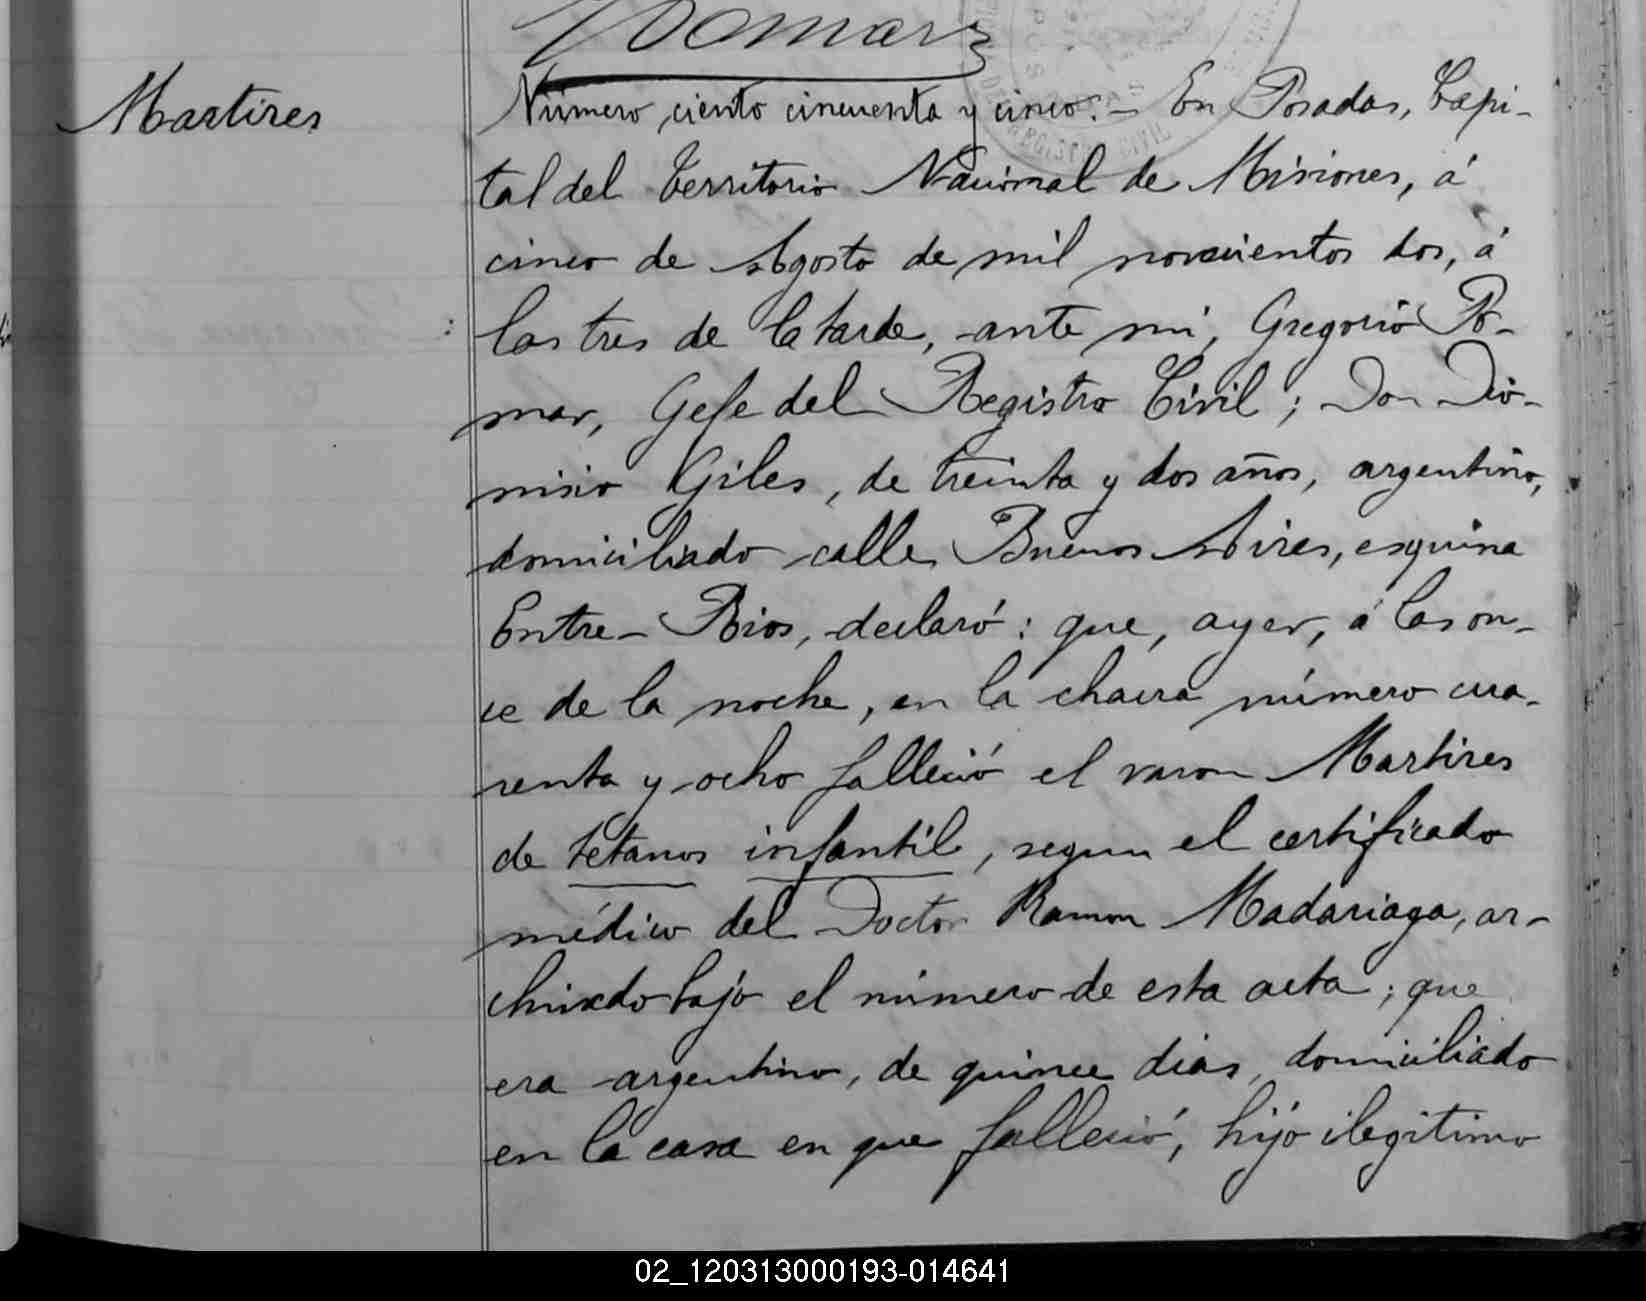 Pomar
Martires
Número ciento cincuenta y cinco.- En Posadas, Capi-
tal del Territorio Nacional de Misiones, á
cinco de Agosto de mil novecientos dos, á
las tres de la tarde, ante mi, Gregorio Po-
mar, Gefe del Registro Civil; Don Dio-
nisio Giles, de treinta y dos años, argentino,
domiciliado calle Buenos Aires, esquina
Entre-Rios, declaró: que, ayer, á las on-
ce de la noche, en la chacra número cua-
renta y ocho falleció el varon Martires
de tétanos infantil, segun el certificado
médico del Doctor Ramon Madariaga, ar-
chivado bajo el número de esta acta; que
era argentino, de quince dias, domiciliado
en la casa en que falleció, hijo ilegitimo
02_120313000193-014641